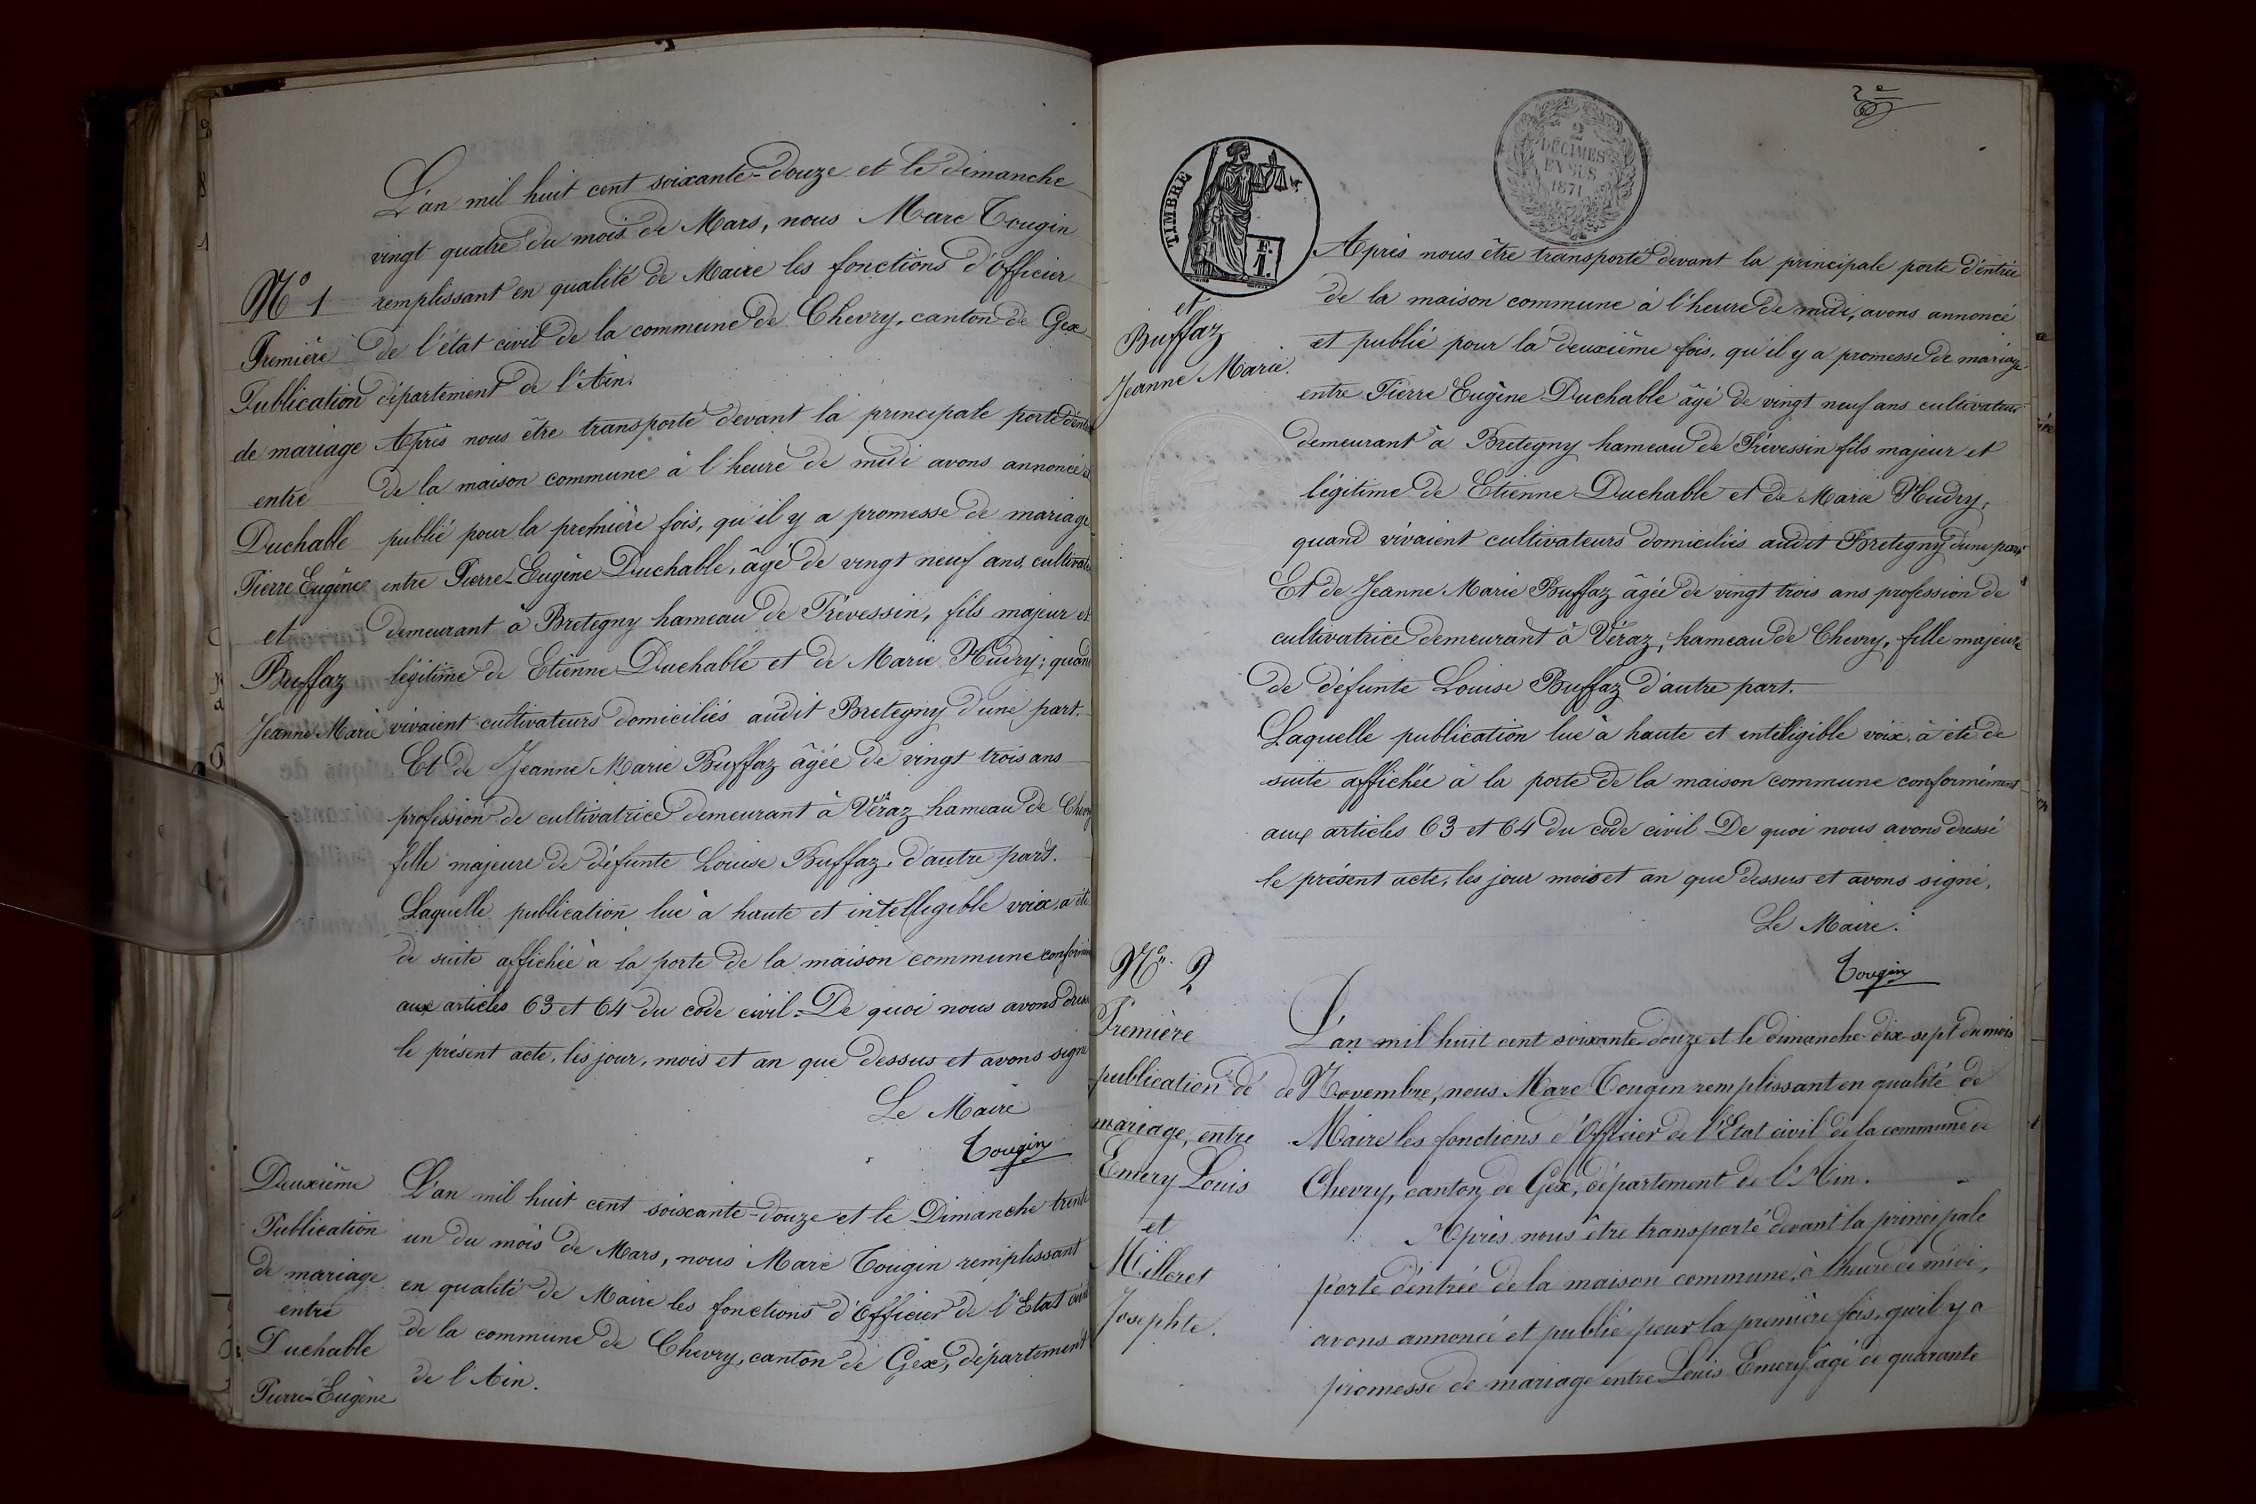 L'an mil huit cent soixante-douze et le dimanche
vingt quatre du mois de Mars, nous Marc Tougin
remplissant en qualité de Maire les fonctions d'Officier
de l'état civil de la commune de Chevry, canton de Gex
département de l'Ain.
Après nous être transporté devant la principale porte d'entrée
de la maison commune à l'heure de midi avons annoncé et
publié pour la première fois, qu'il y a promesse de mariage
entre Pierre-Eugène Duchable, âgé de vingt neuf ans, cultivate
demeurant à Bretegny hameau de Prévessin, fils majeur et
légitime de Etienne Duchable et de Marie Hudry; quand
vivaient cultivateurs domiciliés audit Bretegny d'une part.
Et de Jeanne Marie Buffaz âgée de vingt trois ans
profession de cultivatrice demeurant à Véraz hameau de Chevry
fille majeure de défunte Louise Buffaz d'autre part.
Laquelle publication lue à haute et intelligible voix, a été
de suite affichée à la porte de la maison commune conformém
aux articles 63 et 64 du code civil. De quoi nous avons dressé
le présent acte, les jour, mois et an que dessus et avons signé
Le Maire
Tougin
N° 1
Première
Publication
de mariage
entre
Duchable
Pierre Eugène
et
Buffaz
Jeanne Marie
Deuxième
Publication
de mariage
entre
Duchable
Pierre-Eugène
L'an mil huit cent soixante-douze et le Dimanche trente
un du mois de Mars, nous Marc Tougin remplissant
en qualité de Maire les fonctions d'Officier de l'Etat civil
de la commune de Chevry, canton de Gex, département
de l'Ain.
2e
TIMBRE
2
DÉCIMES
EN SUS
1871
et
Buffaz
Jeanne Marie.
Après nous être transporté devant la principale porte d'entrée
de la maison commune à l'heure de midi, avons annoncé
et publié pour la deuxième fois, qu'il y a promesse de mariage
entre Pierre Eugène Duchable âgé de vingt neuf ans cultivateur
demeurant à Bretegny hameau de Prévessin fils majeur et
légitime de Etienne Duchable et de Marie Hudry;
quand vivaient cultivateurs domiciliés audit Bretegny d'une part
Et de Jeanne Marie Buffaz âgée de vingt trois ans profession de
cultivatrice demeurant à Véraz, hameau de Chevry, fille majeure
de défunte Louise Buffaz d'autre part.
Laquelle publication lue à haute et intelligible voix, a été de
suite affichée à la porte de la maison commune conformément
aux articles 63 et 64 du code civil De quoi nous avons dressé
le présent acte, les jour mois et an que dessus et avons signé.
Le Maire.
Tougin
N° 2
Première
publication de
mariage, entre
Emery Louis
et
Milleret
Josephte.
L'an mil huit cent soixante-douze et le dimanche dix-sept du mois
de Novembre, nous Marc Tougin remplissant en qualité de
Maire les fonctions d'Officier de l'Etat civil de la commune de
Chevry, canton de Gex, département de l'Ain.
Après nous être transporté devant la principale
porte d'entrée de la maison commune, à l'heure de midi,
avons annoncé et publié pour la première fois, qu'il y a
promesse de mariage entre Louis Emery âgé de quarante